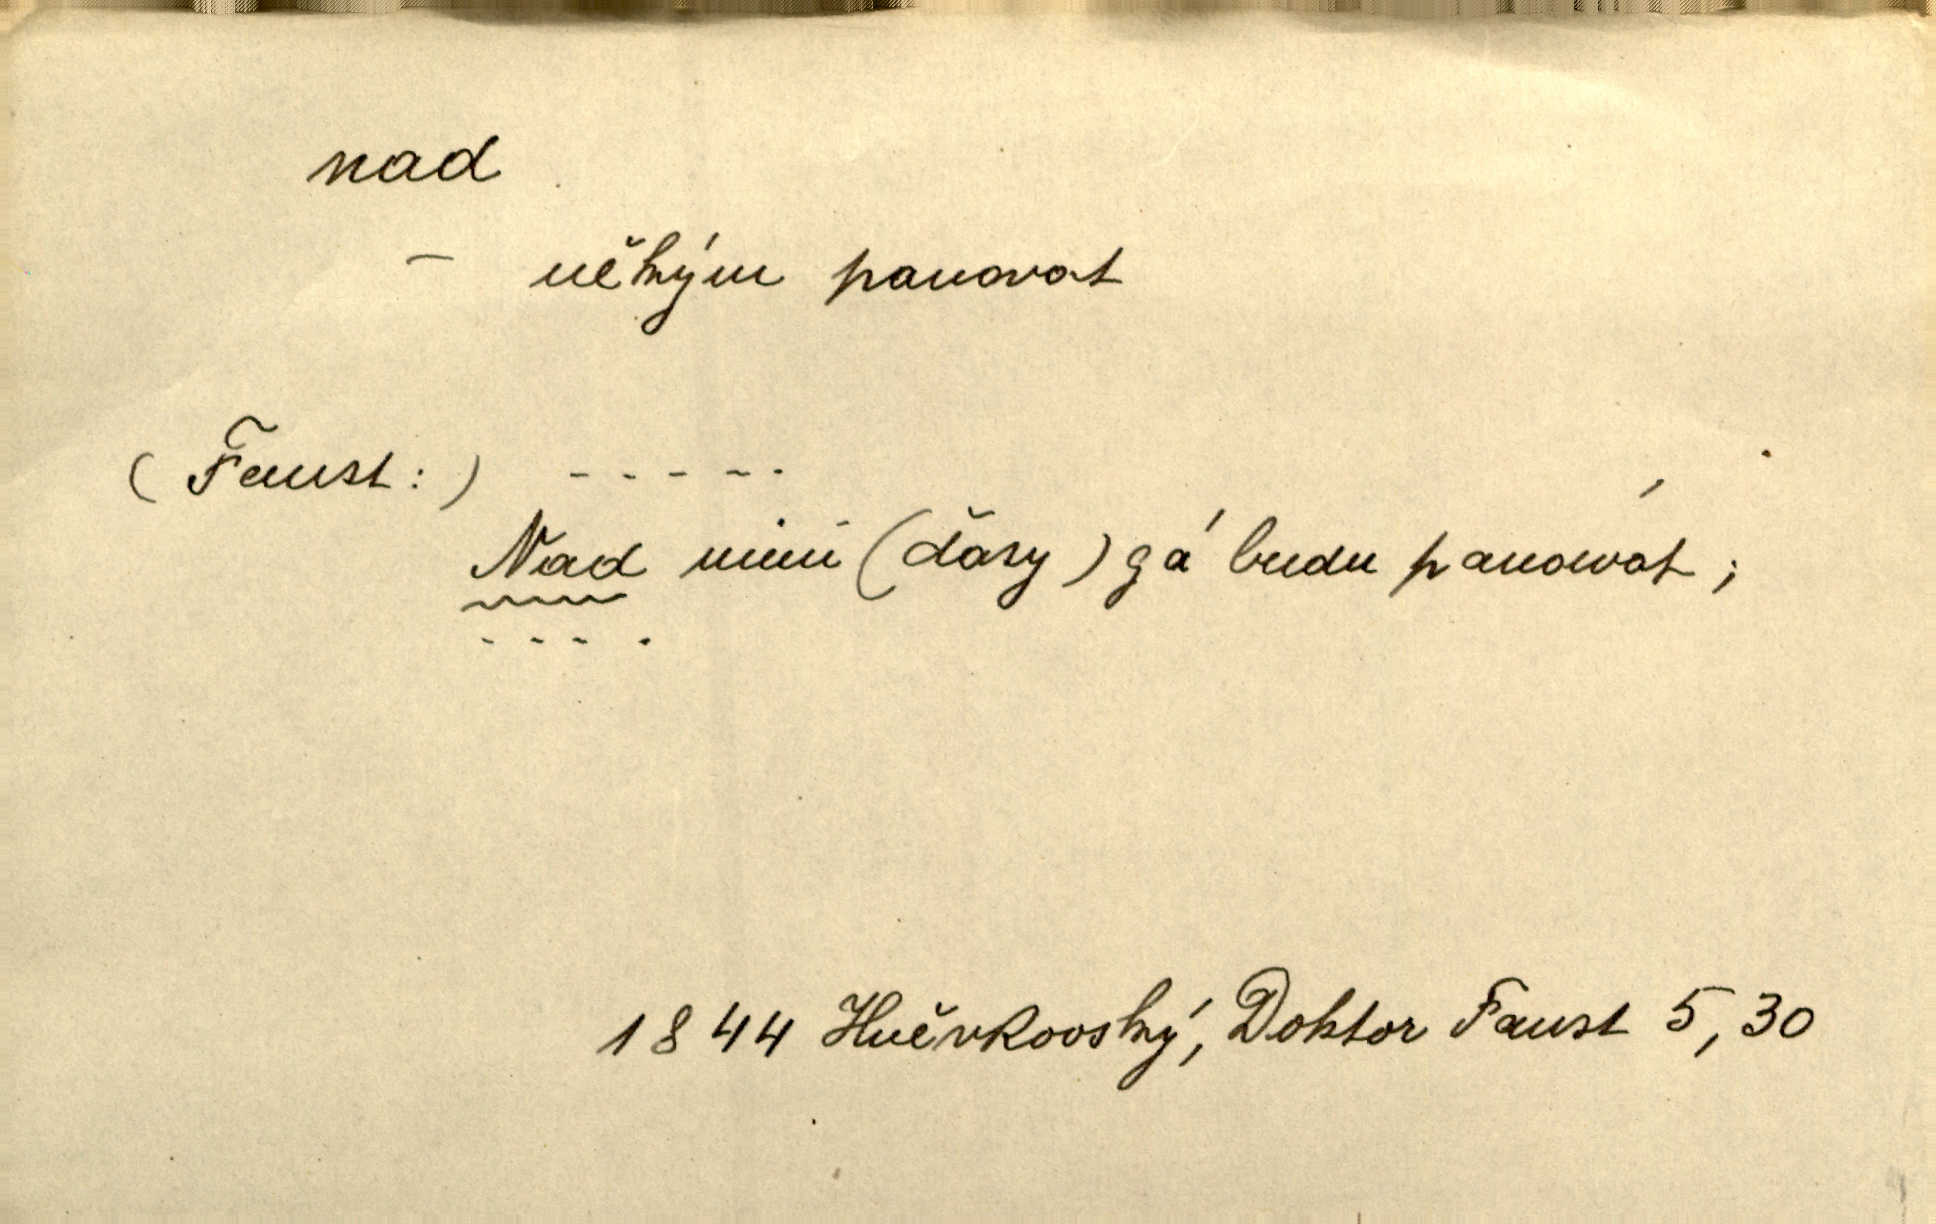 nad
– někým panovat
(Faust:) - - - - -
Nad nimi (ďasy) gá budu panowát;
- - - .
1844 Hněvkovský, Doktor Faust 5, 30